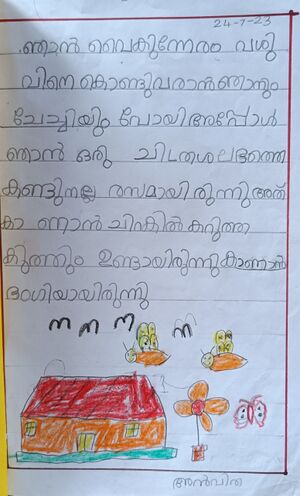 24-7-23
ഞാൻ വൈകുന്നേരം പശു
വിനെ കൊണ്ടുവരാൻഞാനും
ചേച്ചിയും പോയിഅപ്പോൾ
ഞാൻ ഒരു ചിത്രശലഭത്തെ
കണ്ടുനല്ല രസമായിരുന്നുഅത്
കാ ണാൻ ചിറകിൽ കറുത്ത
കുത്തും ഉണ്ടായിരുന്നുകാണാൻ
ഭംഗിയായിരുന്നു
അൻവിത